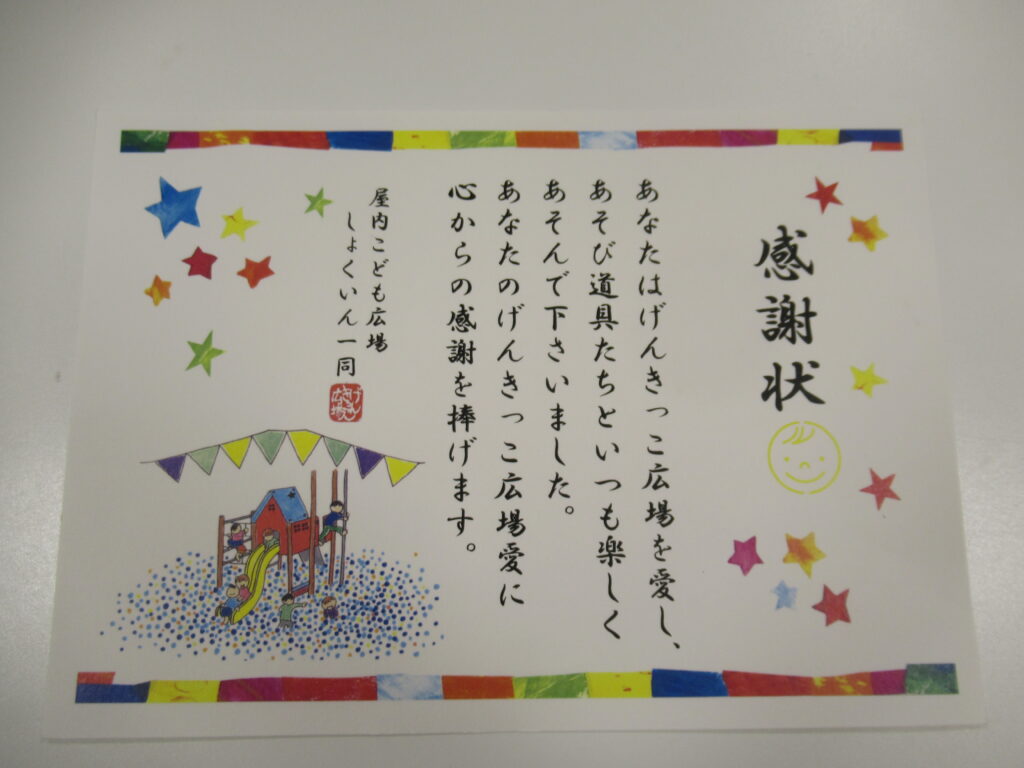 感謝状
あなたはげんきっこ広場を愛し、
あそび道具たちといつも楽しく
あそんで下さいました。
あなたのげんきっこ広場愛に
心からの感謝を捧げます。
屋内こども広場
しょくいん一同